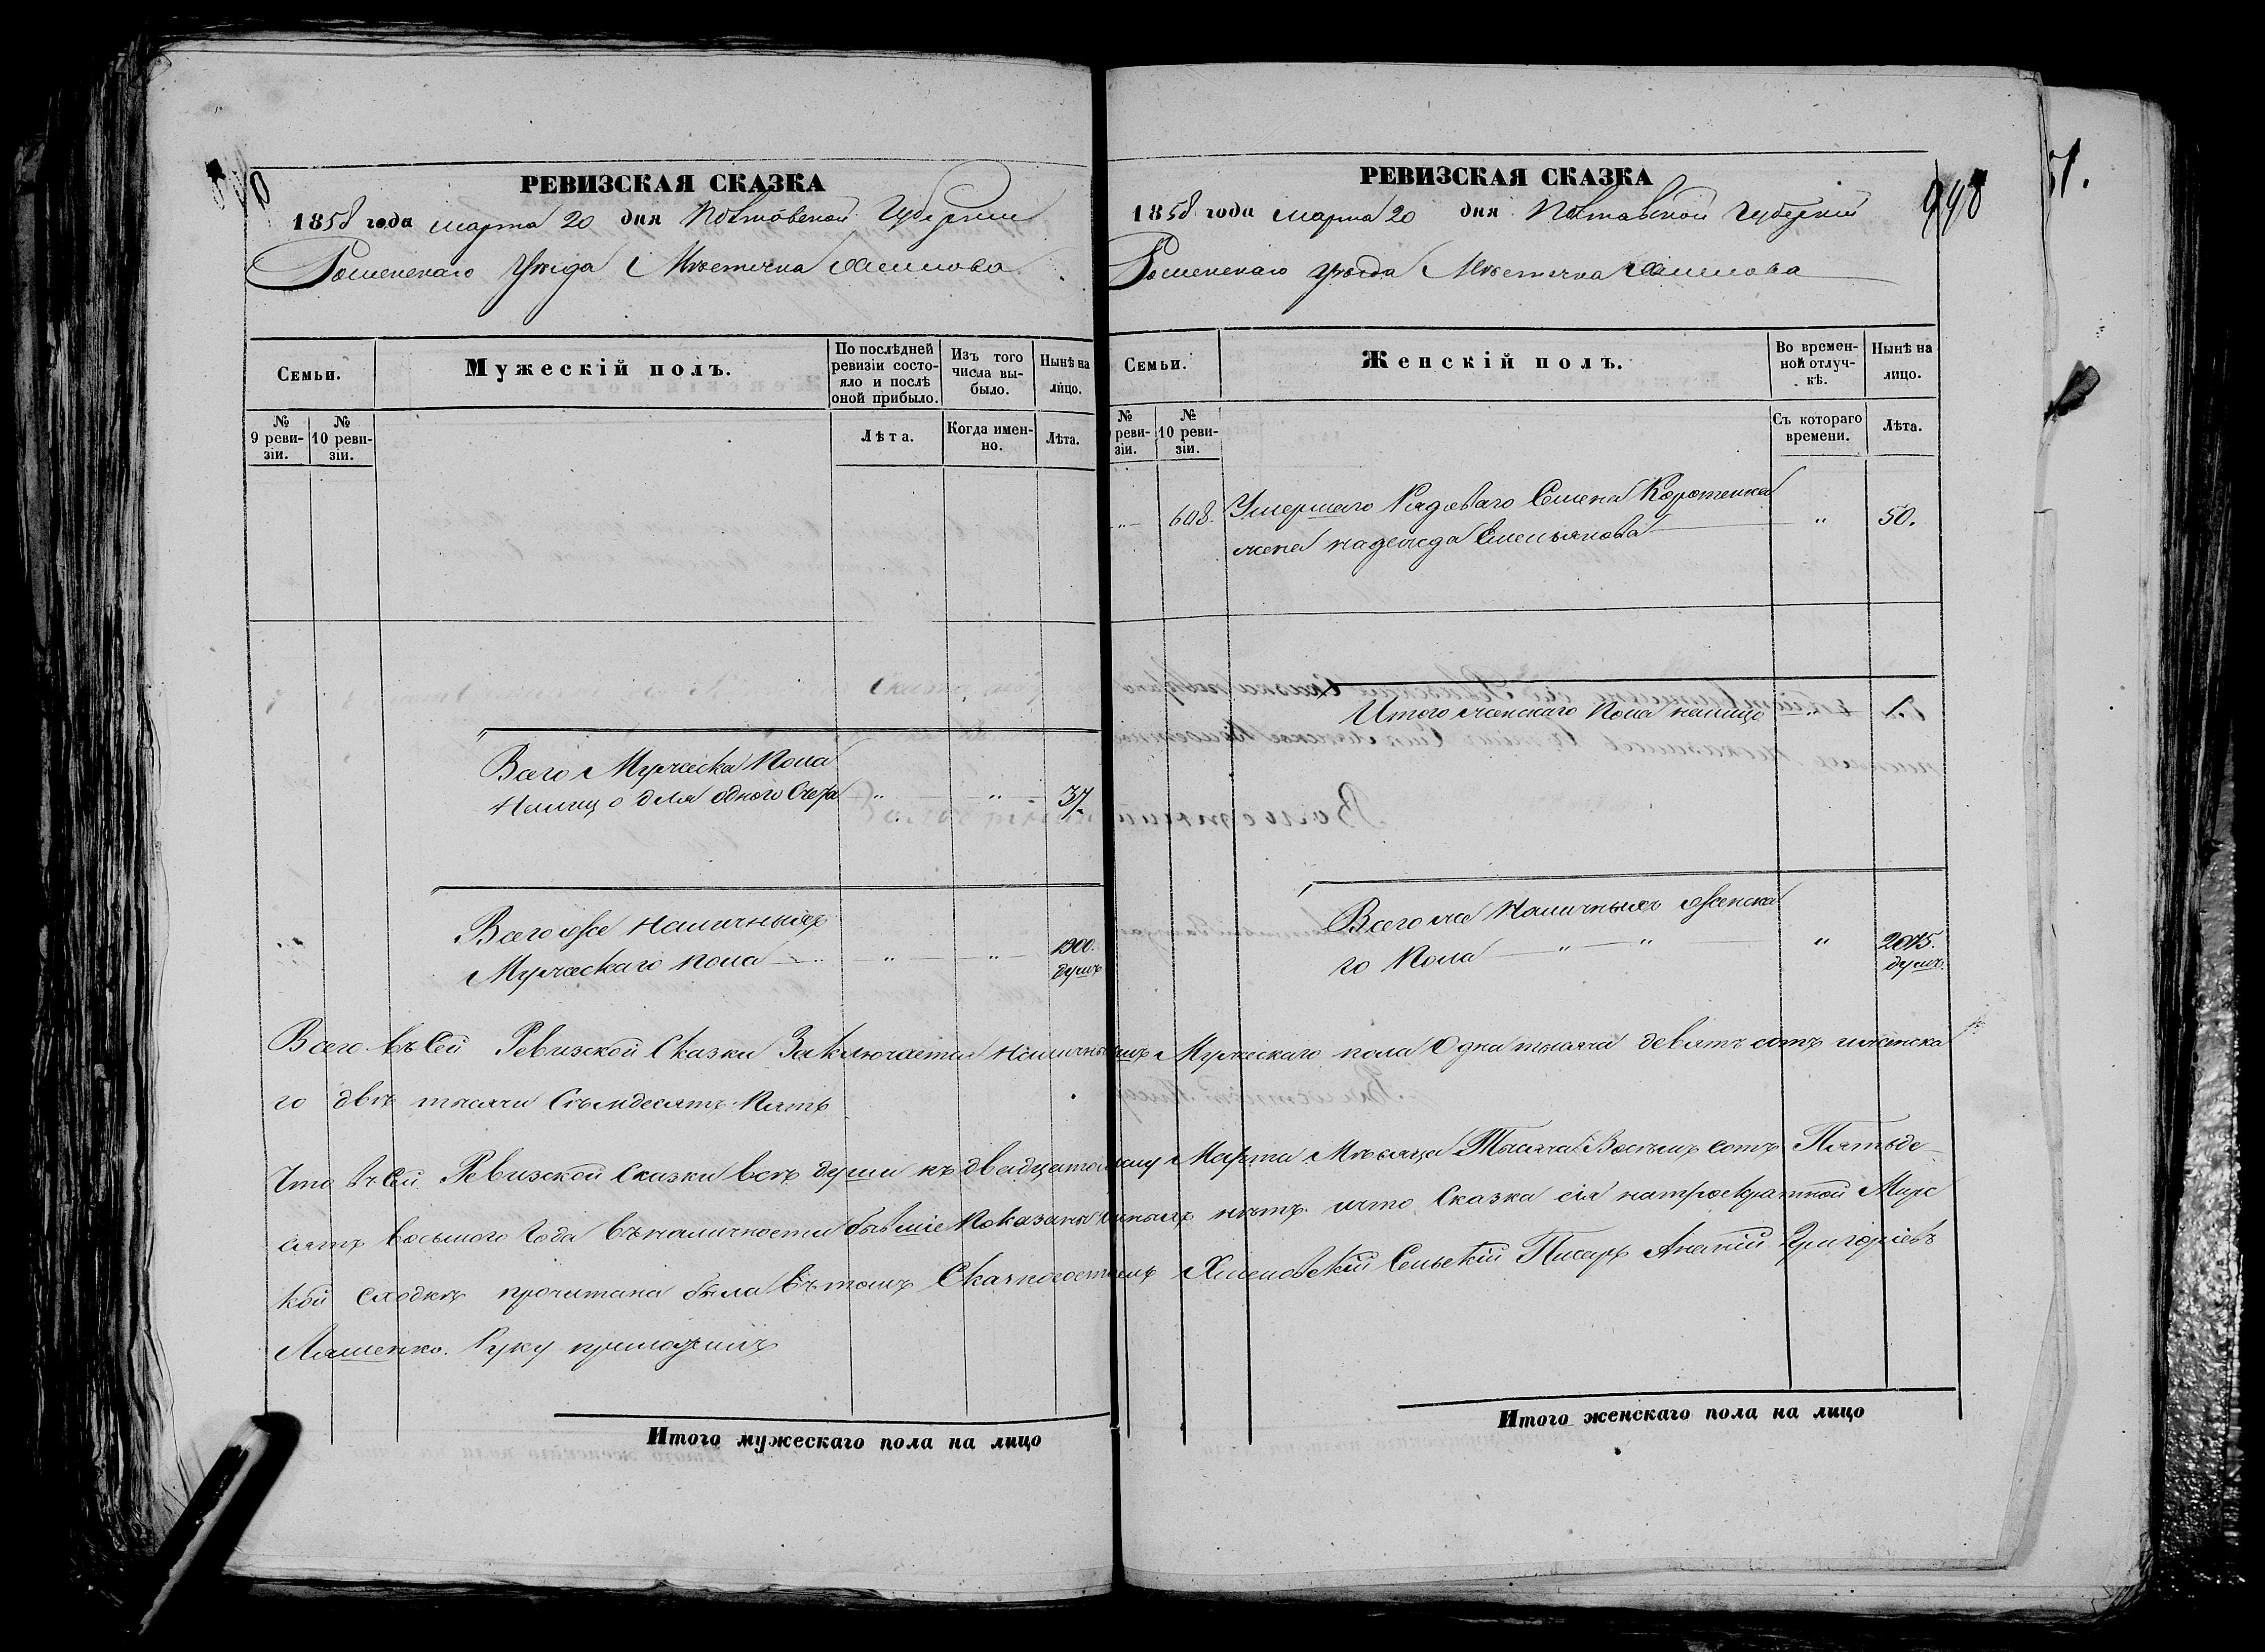 РЕВИЗСКАЯ СКАЗКА
1858 года марта 20 дня Полтавской Губернии
Роменскаго уѣзда Мѣстечка Хмелова
Семьи.
Мужескій полъ.
По послѣдней ревизіи состояло и послѣ оной прибыло.
Изъ того числа выбыло.
Нынѣ на лицо.
№ 9 ревизіи.
№ 10 ревизіи.
Лѣта.
Когда именно.
Лѣта.
Всего Мужеска Пола
Налицо для одного Счета " " 37.
Всего же Наличныхъ
Мужескаго пола " " 1900. душъ
РЕВИЗСКАЯ СКАЗКА
1858 года марта 20 дня Полтавской Губерніи
998
51.
Роменскаго уѣзда Мѣстечка Хмелова
Семьи.
Женскій полъ.
Во временной отлучкѣ.
Нынѣ на лицо.
№ ревизіи.
№ 10 ревизіи.
Съ котораго времени.
Лѣта.
" 608. Умершаго Рядоваго Семена Коротенка
жена надежда Емельянова " 50.
Итого женскаго Пола налицо " 1.
Всего же Наличныхъ Женска
го Пола " " " 2075. душъ.
Всего въ Сей Ревизской Сказки Заключается Наличныхъ Мужескаго пола Одна тысяча девять сотъ иженска
го двѣ тысячи Семдесятъ Пять
Что въ Сей Ревизской Сказки всѣ души къ двадцатому Марта Мѣсяца Тысяча Восемь сотъ Пятьде
сятъ восьмого Года въ наличности бывшіе Показаны нѣтъ. ичто Сказка сія натроекратной Мирс
кой сходкѣ прочитана была въ томъ Хмеловскій Сельскій Писарь Ананій Григоріевъ
Ляшенко. Руку приложилъ
Итого мужескаго пола на лицо
Итого женскаго пола на лицо